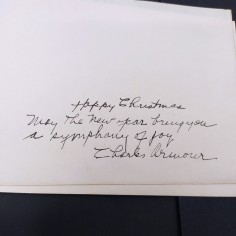 Happy Christmas
May the New year bring you
a symphony of Joy
Charles Armour